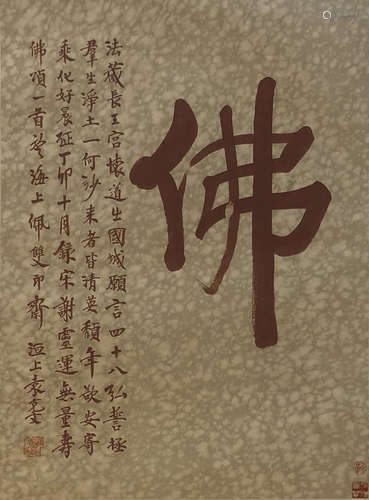 佛
法藏長王宮懷道出國城願言四十八弘誓極
羣生淨土一何沙来者皆清英頹年欲安寄
乘化好晨征丁卯十月錄宋謝靈運無量壽
佛頌一首於海上佩雙印齋 洹上袁克文